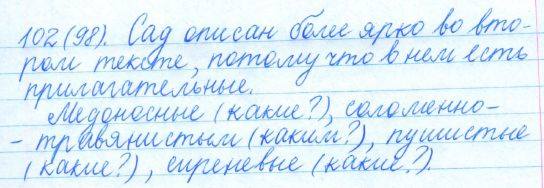 102 (98). Сад описан более ярко во вто-
ром тексте, потому что в нем есть
прилагательные.
Медоносные (какие?), соломенно-
- травянистым (каким?), пушистые
(какие?), сиреневые (какие?).